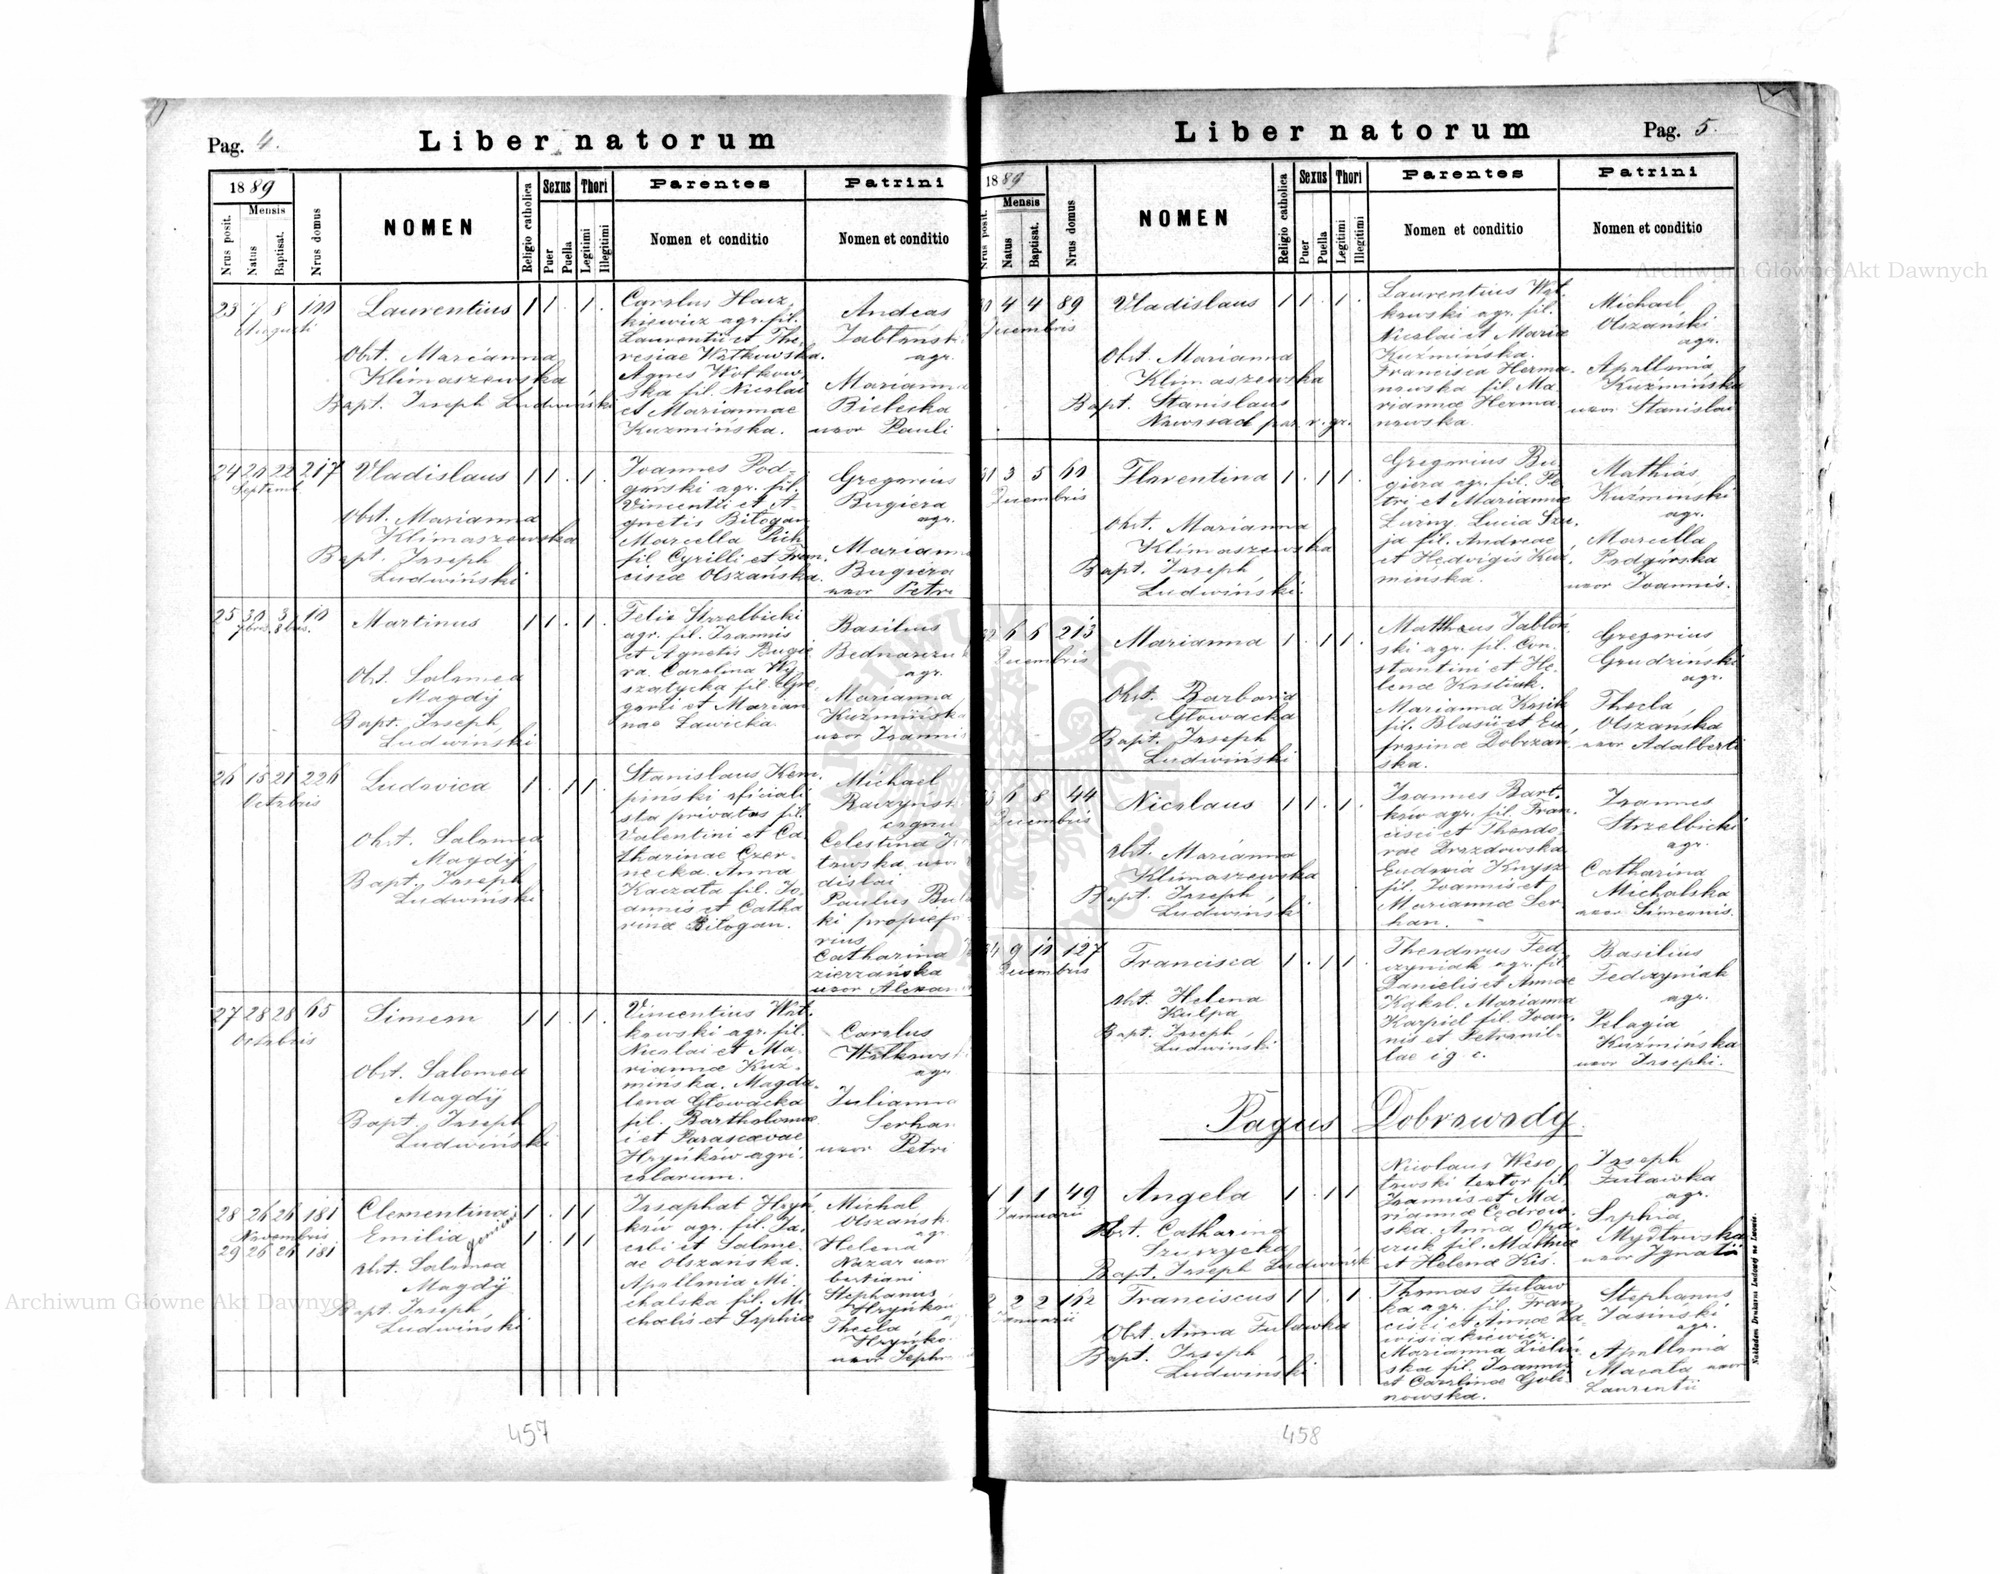 Pag. 4.
Liber natorum
1889
Mensis
Nrus posit.
Natus
Baptisat.
Nrus domus
NOMEN
Religio catholica
Sexus
Puer
Puella
Thori
Legitimi
Illegitimi
Parentes
Nomen et conditio
Patrini
Nomen et conditio
23 7 8 100
Augusti
Laurentius 1 1 . 1 .
Obst. Marianna
Klimaszewska
Bapt. Joseph Ludwiński
Carolus Hacz
kiewicz agr. fil.
Laurentii et The
resiae Wołkowska.
Agnes Wołkow
ska fil. Nicolai
et Mariannae
Kuzmińska.
Andreas
agr.
Marianna
Bielecka
uxor Pauli
24 20 22 217
Septemb
Vladislaus 1 1 . 1
Obst. Marianna
Klimaszewska
Bapt. Joseph
Ludwiński
Joannes Pod
górski agr. fil.
Vincentii et A
gnetis Bilogan
Marcella Pich
fil. Cyrilli et Fran
cisca Olszańska.
Gregorius
Bugiera
agr.
Marianna
Bugiera
uxor Petri
25 30 3 10
7bris. 8bris.
Martinus 1 1 . 1 .
Obst. Salomea
Magdÿ
Bapt. Joseph
Ludwiński
Felix Strzelbicki
agr. fil. Joannis
et Agnetis Bugie
ra. Carolina Wy
szatycka fil. Gre
gorii et Marian
nae Ławicka.
Basilius
agr.
Marianna
Kuzmińska
uxor Joannis
26 15 21 226
Octobris
Ludovica 1 . 1 1
Obst. Salomea
Magdÿ
Bapt. Joseph
Ludwiński
Stanislaus Kem
piński oficiali
sta privatus fil.
Valentini et Ca
tharinae Czer
necka. Anna
Kaczała fil. Jo
annis et Catha
rinae Bilogan.
Michael
Celestina
Paulus
Catharina
uxor
27 28 28 65
Octobris
Simeon 1 1 . 1 .
Obst. Salomea
Magdÿ
Bapt. Joseph
Ludwiński
Vincentius Woł
kowski agr. fil.
Nicolai et Ma
riannae Kuź
mińska. Magda
lena Głowacka
fil. Bartholomae
i et Parascevae
Hryńków agri
colarum.
Carolus
Wołkowski
agr.
Julianna
Serhan
uxor Petri
28 26 26 181
Novembris
29 26 26 181
Clementina 1 . 1 1
Emilia 1 . 1 1
gemini
Obst. Salomea
Magdÿ
Bapt. Joseph
Ludwiński
Josaphat Hryń
ków agr. fil. Ja
cobi et Salome
ae Olszańska.
Apollonia Mi
chalska fil. Mi
chalis et Sophiae
Michal
Olszańsk
agr.
Helena
Nazar uxor
Stephanus
Hryńkow
Thecla
Hryńko
uxor
457
Liber natorum
Pag. 5.
1889
Mensis
Nrus posit.
Natus
Baptisat.
Nrus domus
NOMEN
Religio catholica
Sexus
Puer
Puella
Thori
Legitimi
Illegitimi
Parentes
Nomen et conditio
Patrini
Nomen et conditio
4 4 89
Decembris
Vladislaus 1 1 . 1 .
Obst. Marianna
Klimaszewska
Bapt. Stanislaus
Nawsiad par. r. gr.
Laurentius Woł
kowski agr. fil.
Nicolai et Mariae
Kuźmińska.
Francisca Herma
nowska fil. Ma
riannae Herma
nowska.
Michael
Olszański
agr.
Apollonia
Kuźmińska
uxor Stanislai
3 5 60
Decembris
Florentina 1 . 1 1
Obst. Marianna
Klimaszewska
Bapt. Joseph
Ludwiński.
Gregorius Bu
giera agr. fil. Pe
tri et Mariannae
Żurny. Lucia Szu
ja fil. Andreae
et Hedvigis Kuź
mińska.
Mathias
Kuźmiński
agr.
Marcella
Podgórska
uxor Joannis.
6 6 213
Decembris
Marianna 1 . 1 1 .
Obst. Barbara
Głowacka
Bapt. Joseph
Ludwiński
Mattheus Jabłoń
ski agr. fil. Con
stantini et He
lenae Kostiuk.
Marianna Kosik
fil. Blasii et Eu
frosinae Dobrzań
ska.
Gregorius
Grudziński
agr.
Thecla
Olszańska
uxor Adalberti
6 8 44
Decembris
Nicolaus 1 1 . 1 .
obst. Marianna
Klimaszewska
Bapt. Joseph
Ludwiński
Joannes Bart
ków agr. fil. Fran
cisci et Theodo
rae Drozdowska
Eudoxia Knysz
fil. Joannis et
Mariannae Ser
han.
Joannes
Strzelbicki
agr.
Catharina
Michalska
uxor Simeonis.
9 10 127
Decembris
Francisca 1 . 1 1 .
obst. Helena
Kulpa
Bapt. Joseph
Ludwiński
Theodorus Fed
czyniak agr. fil.
Danielis et Annae
Kąkol. Marianna
Karpiel fil. Joan
nis et Petronil
lae
Basilius
Fedczyniak
agr.
Pelagia
Kuźmińska
uxor Josephi.
Pagus Dobrowody.
1 1 1 49
Januarii
Angela 1 . 1 1
Obst. Catharina
Bapt. Joseph Ludwiński
Nicolaus Weso
łowski textor fil.
Joannis et Ma
riannae Cedrow
ska. Anna Opa
czuk fil. Mathiae
et Helenae Kis.
Joseph
Fuławka
agr.
Sophia
Mydłowska
uxor Ignatii
2 2 2 162
Januarii
Franciscus 1 1 . 1 .
Obst. Anna Fuławka
Bapt. Joseph
Ludwiński
Thomas Fuław
ka agr. fil. Fran
cisci et Annae
Marianna Zieliń
ska fil. Joannis
et Carolinae Goli
nowska.
Stephanus
Jasiński
agr.
Apollonia
Macała uxor
Laurentii
Nakładem Drukarni Ludowej we Lwowie.
458
Archiwum Główne Akt Dawnych
Archiwum Główne Akt Dawnych